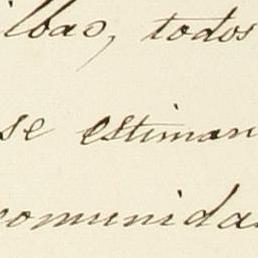 ilbao, todos
se estiman
comunida